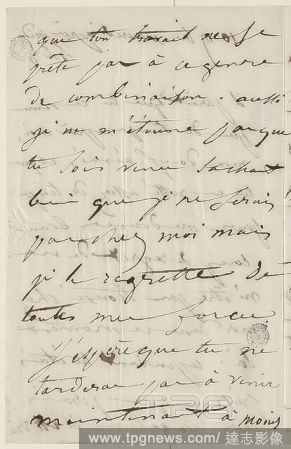 que ton travail ne se
prête pas à ce genre
de combinaison. aussi
je ne m'étonne pas que
tu sois venu sachant
bien que je ne serais
pas chez moi mais
je le regrette de
toutes mes forces
J'espère que tu ne
tarderas pas à venir
maintenant à moins
www.tpgnews.com / 達志影像